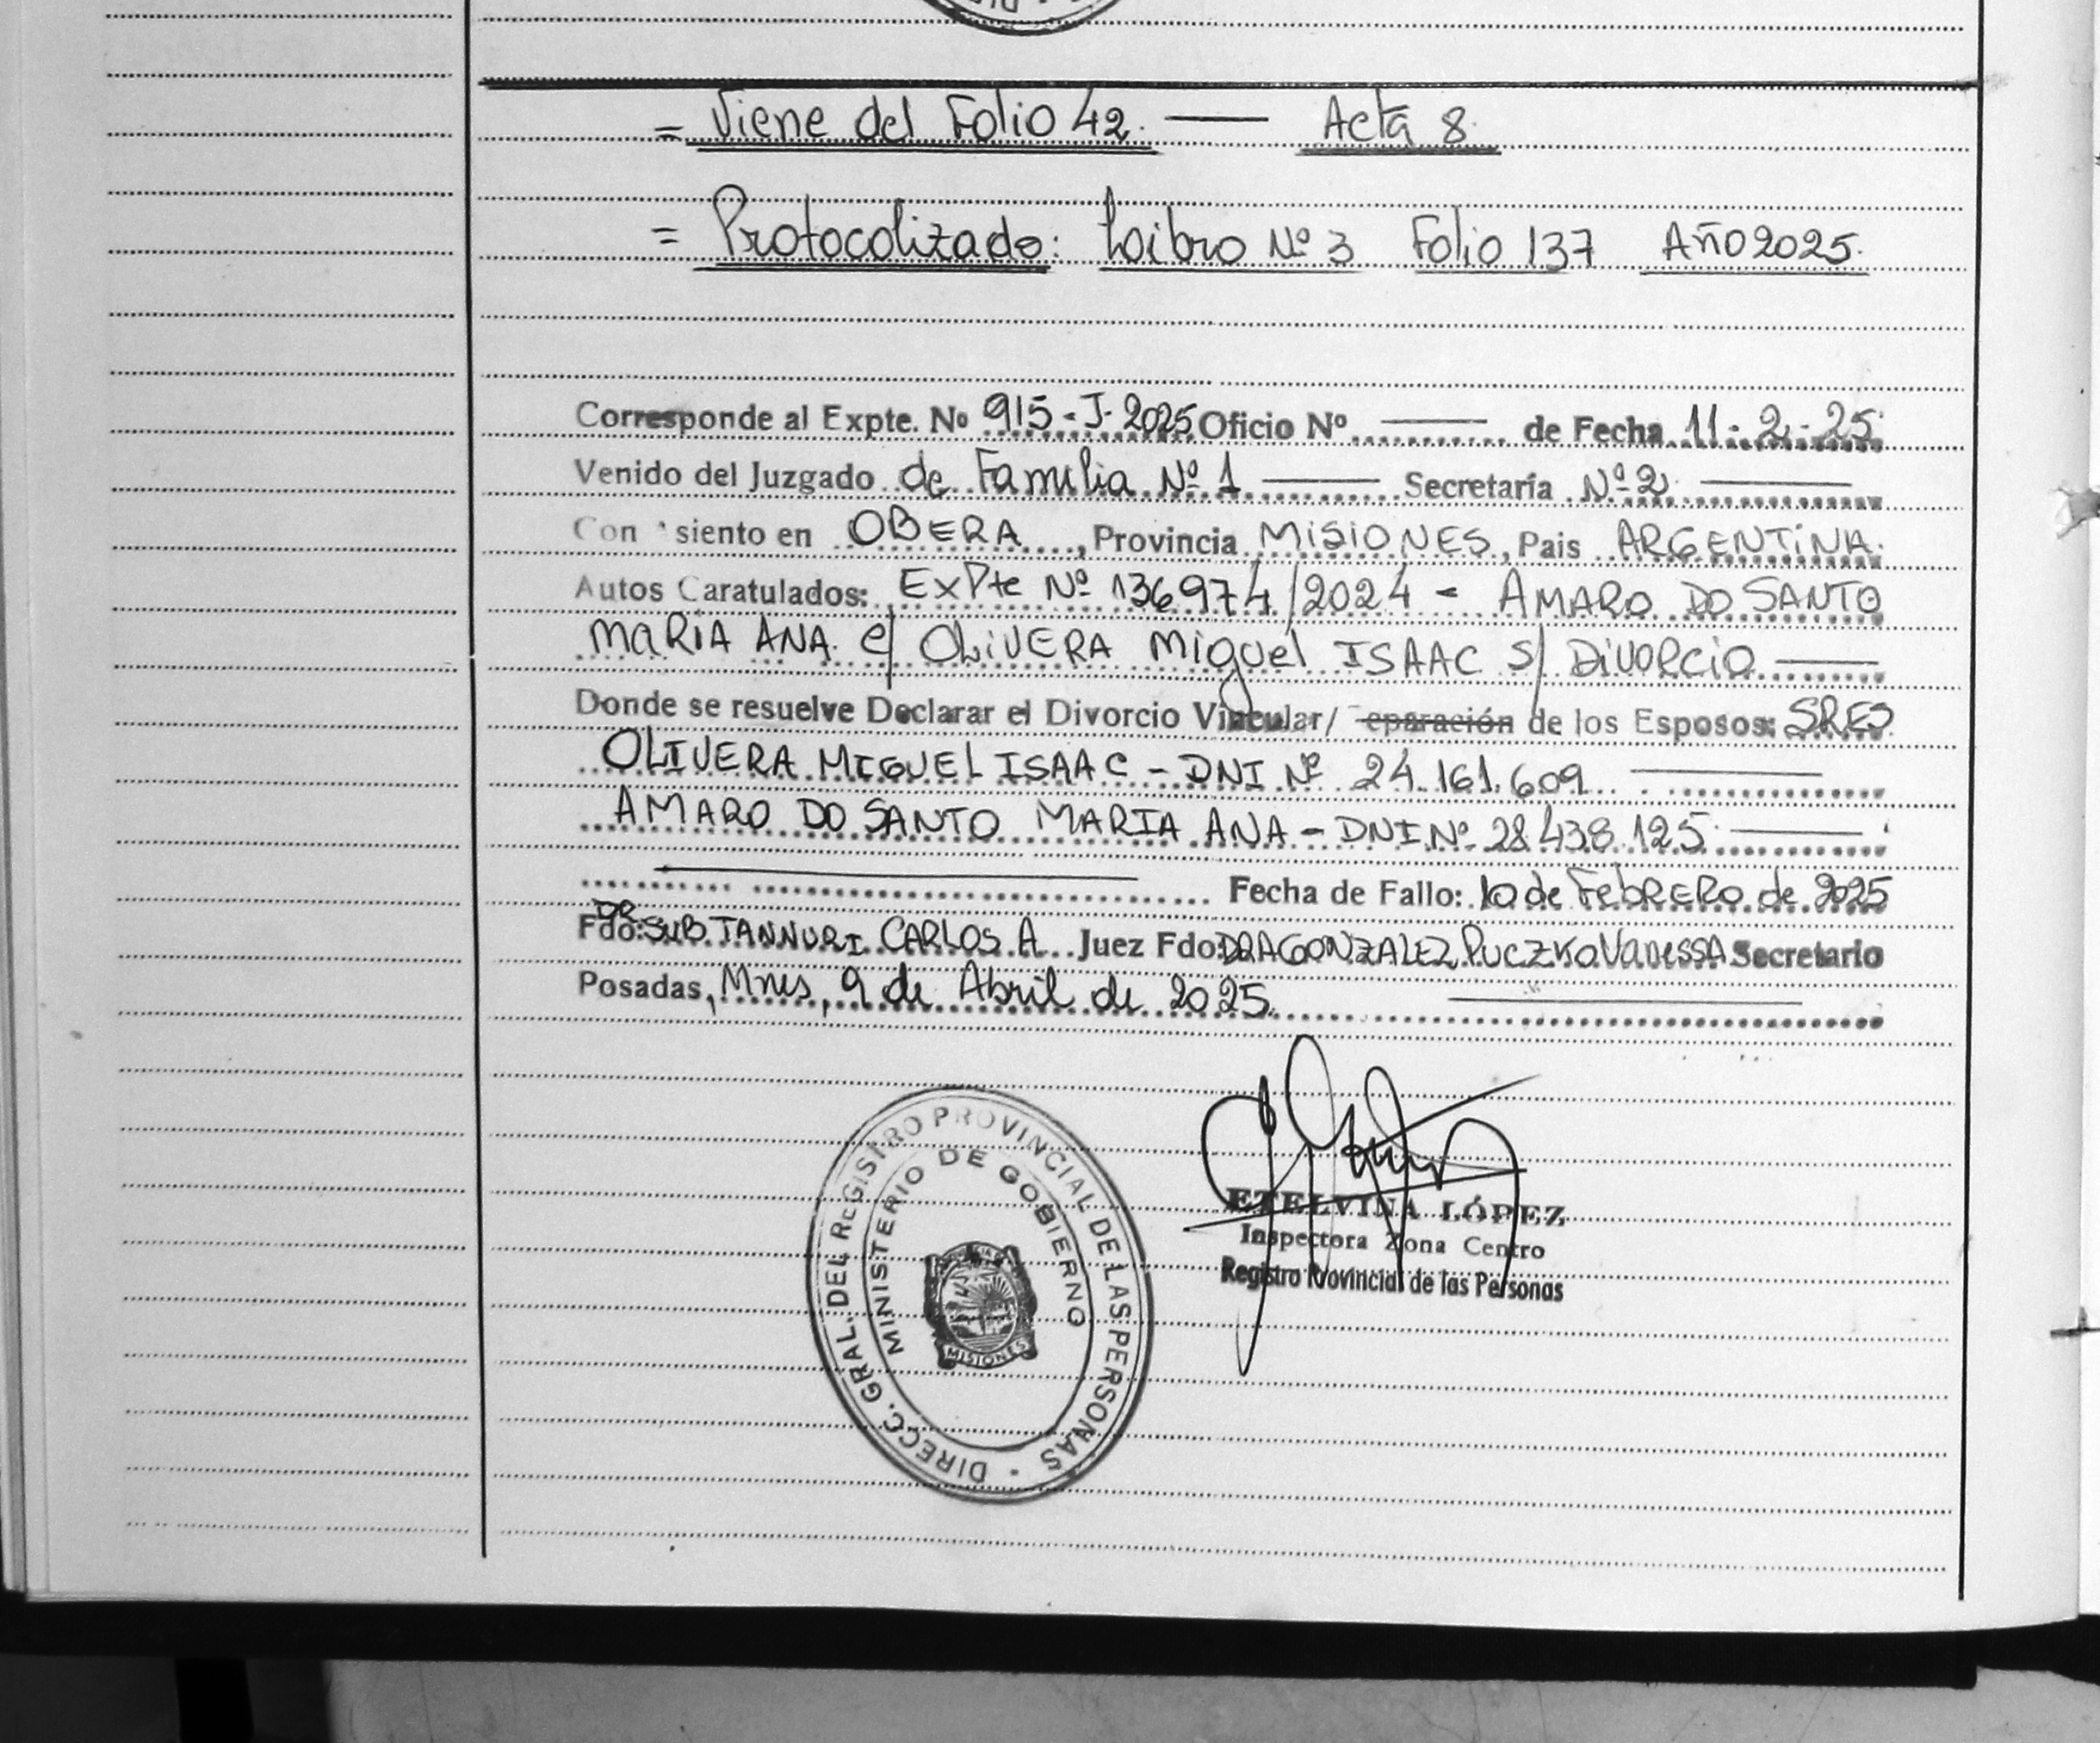 = Viene del Folio 42. — Acta 8.
= Protocolizado: Libro Nº 3 Folio 137 Año 2025.
Corresponde al Expte. Nº 915-J-2025 Oficio Nº ——— de Fecha 11-2-25
Venido del Juzgado de Familia Nº 1 ——— Secretaría Nº 2 ———
Con siento en OBERA, Provincia MISIONES, Pais ARGENTINA.
Autos Caratulados: ExPte Nº 136974/2024 - AMARO DO SANTO
MARIA ANA c/ OLIVERA Miguel ISAAC s/ DIVORCIO ———
Donde se resuelve Declarar el Divorcio Vincular/ eparación de los Esposos: SRES
OLIVERA MIGUEL ISAAC - DNI Nº 24.161.609 ———
AMARO DO SANTO MARIA ANA - DNI Nº 28.438.125 ———
——— Fecha de Fallo: 10 de FEBRERO de 2025
Fdo: DR SUB TANNURI CARLOS A. Juez Fdo: DRA GONZALEZ PUCZKO VANESSA Secretario
Posadas, Mnes, 9 de Abril de 2025. ———
DIRECC. GRAL. DEL REGISTRO PROVINCIAL DE LAS PERSONAS
MINISTERIO DE GOBIERNO
MISIONES
ETELVINA LÓPEZ
Inspectora Zona Centro
Registro Provincial de las Personas